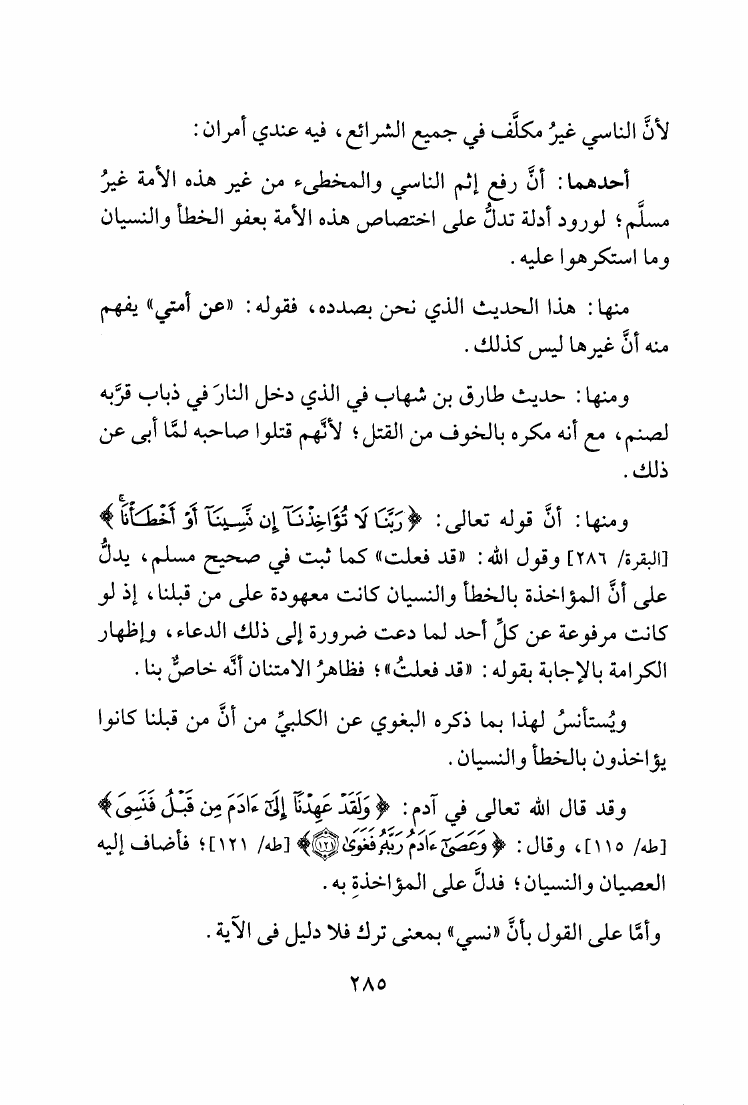 لأنَّ الناسي غيرُ مكلَّف في جميع الشرائع، فيه عندي أمران:
أحدهما: أنَّ رفع إثم الناسي والمخطىء من غير هذه الأمة غيرُ
مسلَّم؛ لورود أدلة تدلُّ على اختصاص هذه الأمة بعفو الخطأ والنسيان
وما استكرهوا عليه.
منها: هذا الحديث الذي نحن بصدده، فقوله: «عن أمتي» يفهم
منه أنَّ غيرها ليس كذلك.
ومنها: حديث طارق بن شهاب في الذي دخل النارَ في ذباب قرَّبه
لصنم، مع أنه مكره بالخوف من القتل؛ لأنَّهم قتلوا صاحبه لمَّا أبى عن
ذلك.
ومنها: أنَّ قوله تعالى: ﴿رَبَّنَا لَا تُؤَاخِذْنَآ إِن نَّسِينَآ أَوْ أَخْطَأْنَاۚ﴾
[البقرة/ ٢٨٦] وقول الله: «قد فعلت» كما ثبت في صحيح مسلم، يدلُّ
على أنَّ المؤاخذة بالخطأ والنسيان كانت معهودة على من قبلنا، إذ لو
كانت مرفوعة عن كلِّ أحد لما دعت ضرورة إلى ذلك الدعاء، وإظهار
الكرامة بالإجابة بقوله: «قد فعلتُ»؛ فظاهرُ الامتنان أنَّه خاصٌّ بنا.
ويُستأنسُ لهذا بما ذكره البغوي عن الكلبيِّ من أنَّ من قبلنا كانوا
يؤاخذون بالخطأ والنسيان.
وقد قال الله تعالى في آدم: ﴿وَلَقَدْ عَهِدْنَآ إِلَىٰٓ ءَادَمَ مِن قَبْلُ فَنَسِىَ﴾
[طه/ ١١٥]، وقال: ﴿وَعَصَىٰٓ ءَادَمُ رَبَّهُۥ فَغَوَىٰ ۝١٢١﴾ [طه/ ١٢١]؛ فأضاف إليه
العصيان والنسيان؛ فدلَّ على المؤاخذةِ به.
وأمَّا على القول بأنَّ «نسي» بمعنى ترك فلا دليل في الآية.
٢٨٥